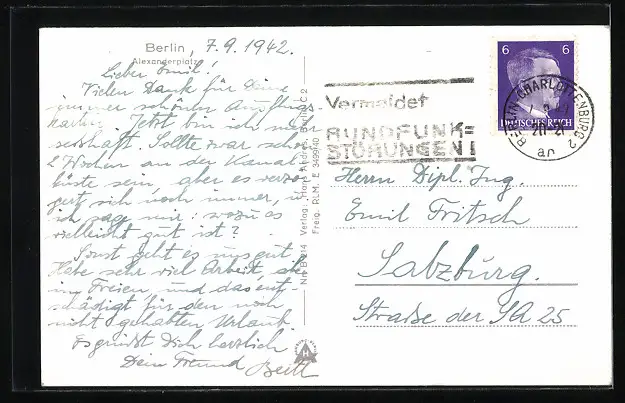 Berlin, 7.9.1942.
Alexanderplatz
Lieber Emil!
Vielen Dank für Deine
immer schönen Ausflugs-
karten. Jetzt bin ich mehr
sesshaft. Sollte zwar schon
2 Wochen an der Kanal-
küste sein, aber es verzö-
gert sich noch immer, u.
ich sage mir: wozu es
vielleicht gut ist?
Sonst geht es uns gut.
Habe sehr viel Arbeit, aber
im Freien, und das ent-
schädigt für den noch
nicht gehabten Urlaub
Es grüßt Dich herzlich
Dein Freund
Nr. B 214 Verlag: Hans Andres, Berlin C 2
Freig. RLM. E 3499/40
Vermeidet
RUNDFUNK=
STÖRUNGEN!
6 6
DEUTSCHES REICH
BERLIN-CHARLOTTENBURG 2
an
Herrn Dipl. Ing.
Emil Fritsch
Salzburg.
Straße der SA 25